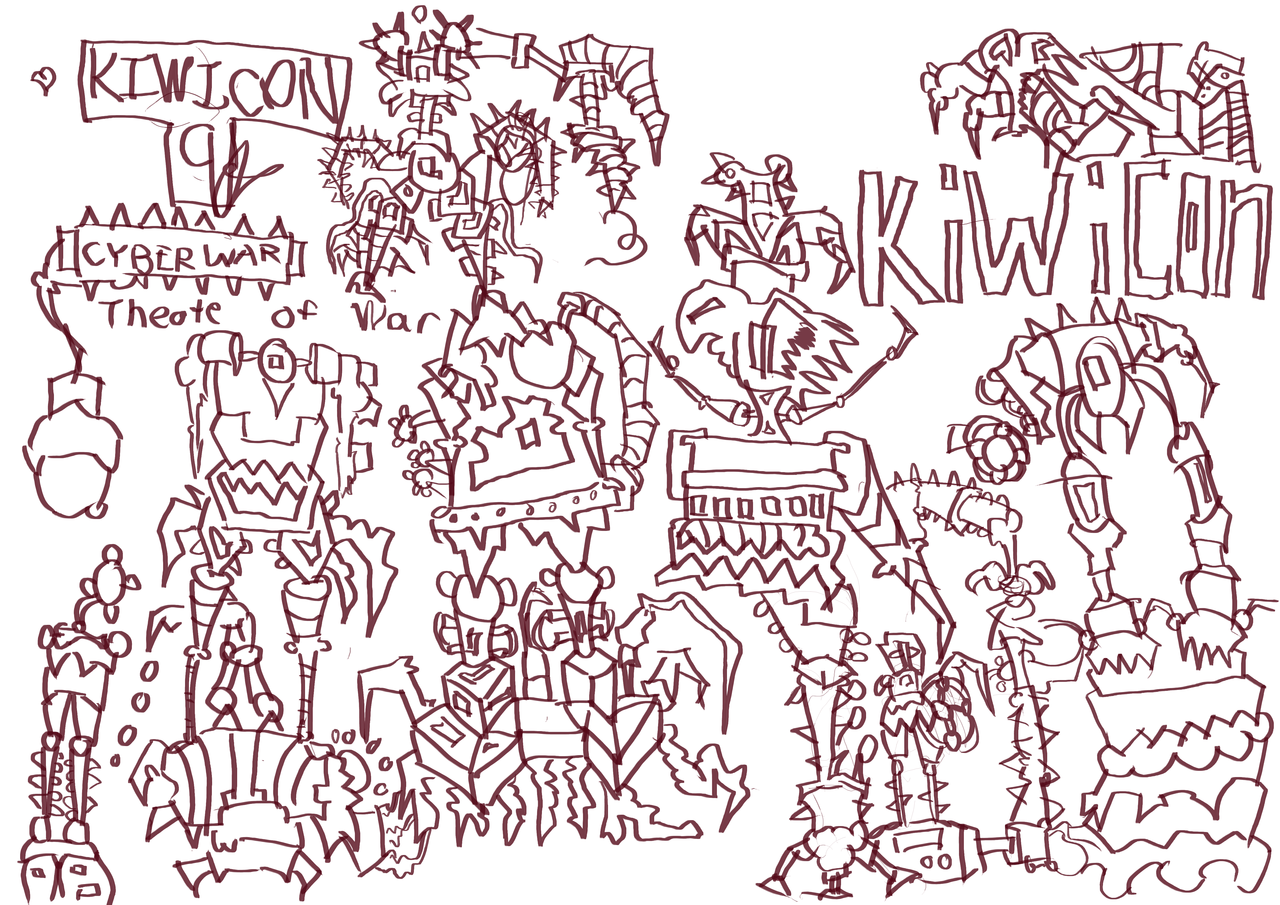 KIWICON
CYBERWAR
Theate of War
KiWiCon